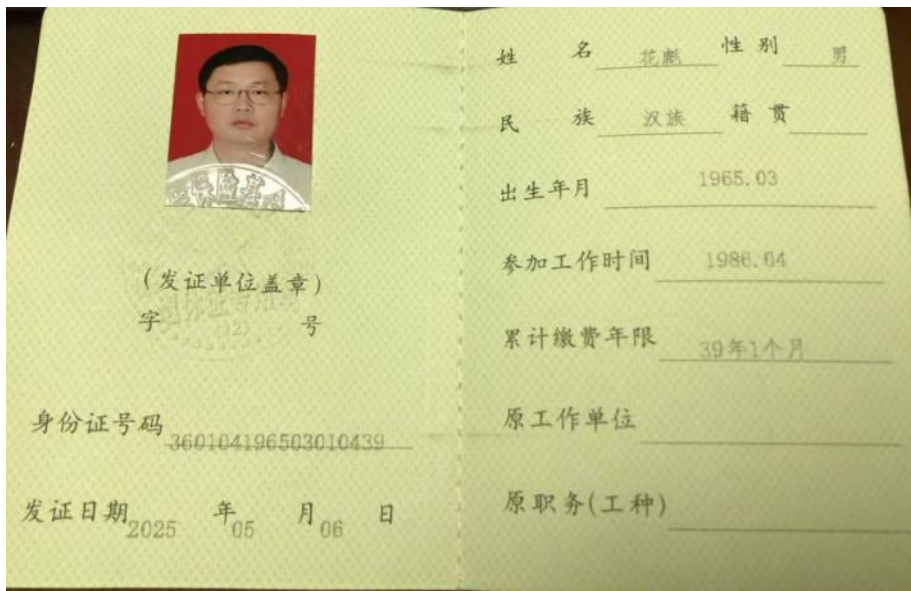 (发证单位盖章)
字 号
身份证号码 360104196503010439
发证日期 2025 年 05 月 06 日
姓 名 花彪 性 别 男
民 族 汉族 籍 贯
出生年月 1965.03
参加工作时间 1986.04
累计缴费年限 39年1个月
原工作单位
原职务(工种)